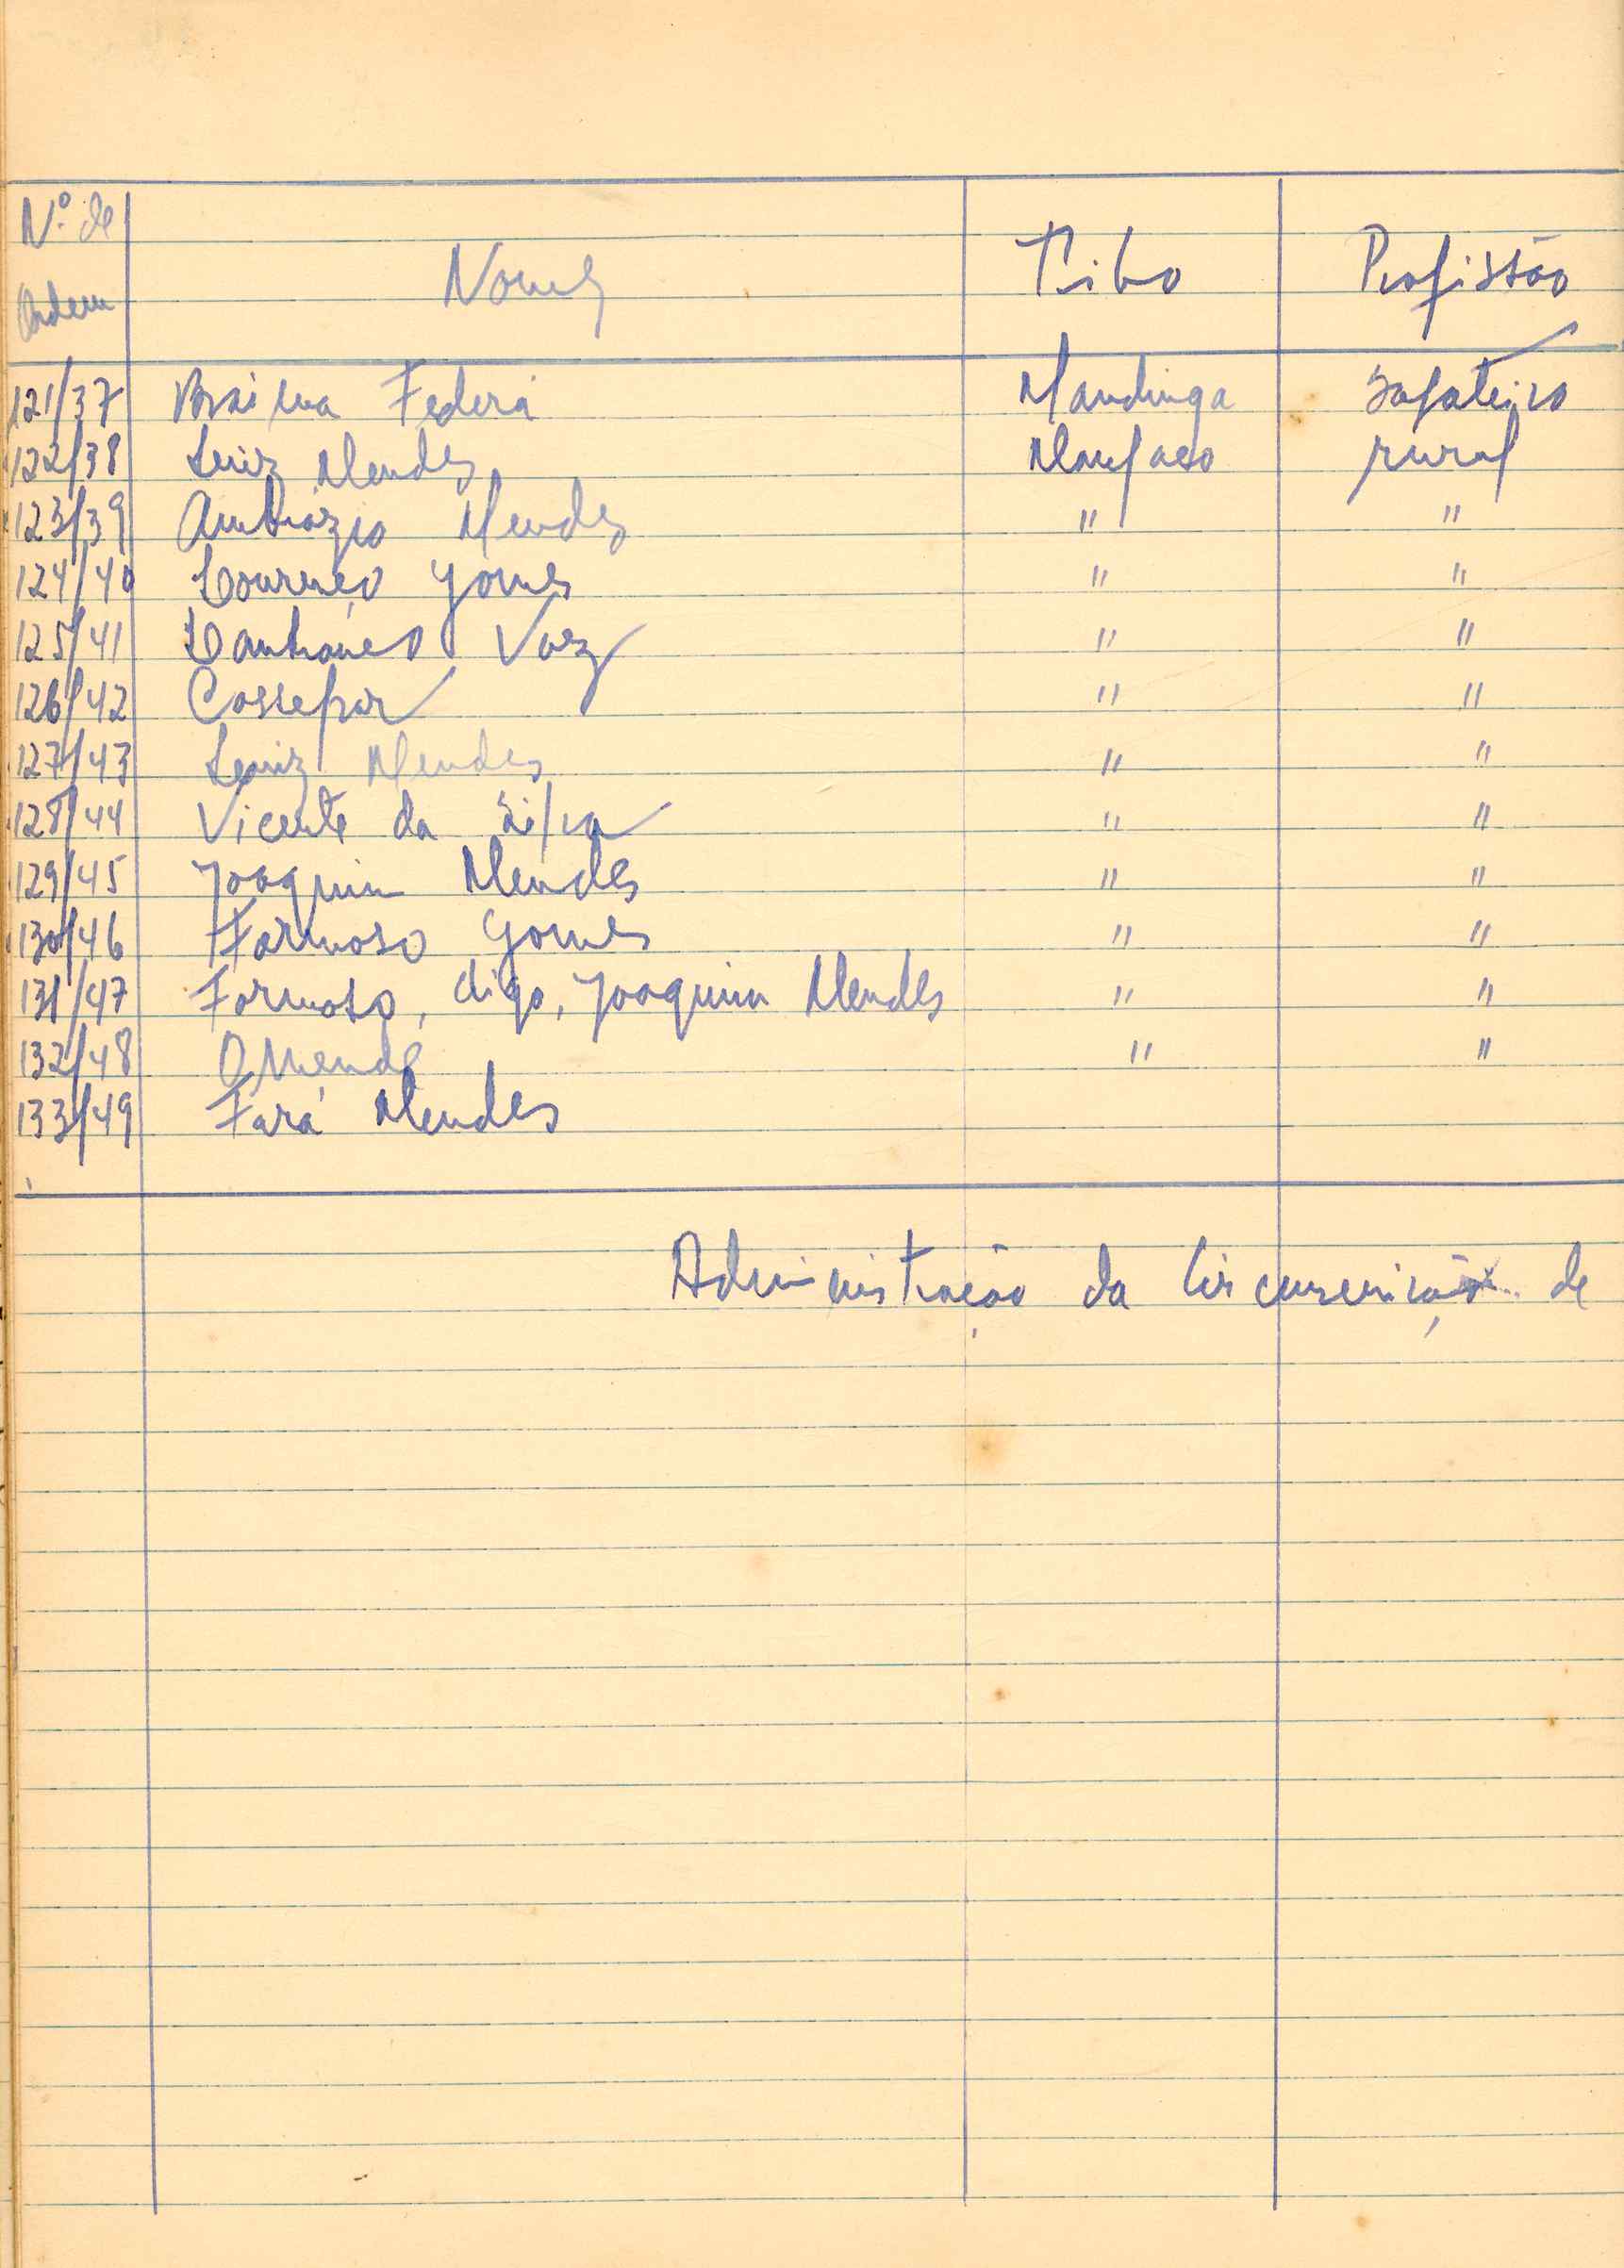 Nº de
Ordem Nomes Tribo Profissão
121/37 Braima Federá Mandinga Sapateiro
122/38 Luiz Mendes Manjaco rural
123/39 Ambrózio Mendes " "
124/40 Lourenço Gomes " "
125/41 Vaz " "
126/42 " "
127/43 Luiz Mendes " "
128/44 Vicente da Silva " "
129/45 Joaquim Mendes " "
130/46 Formoso Gomes " "
131/47 Formoso, digo, Joaquim Mendes " "
132/48 " "
133/49 Fará Mendes
Administração da Circunscrição de